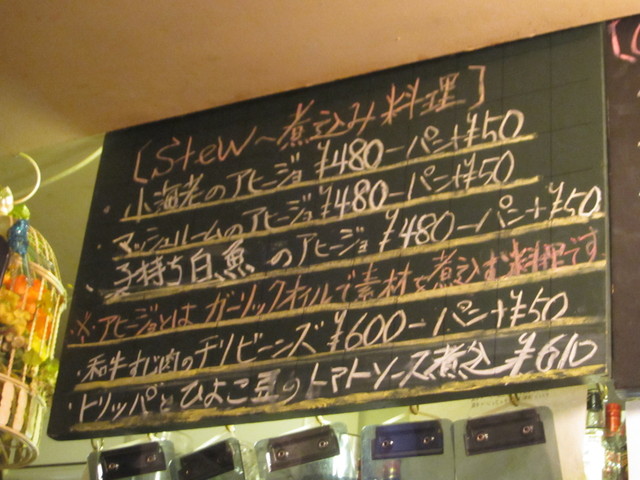 [Stew〜煮込み料理]
・小海老のアヒージョ ¥480-パン+¥50
・マッシュルームのアヒージョ ¥480-パン+¥50
・子持ち白魚のアヒージョ ¥480-パン+¥50
※アヒージョとはガーリックオイルで素材を煮込む料理です
・和牛すじ肉のチリビーンズ ¥600-パン+¥50
・トリッパとひよこ豆のトマトソース煮込 ¥610